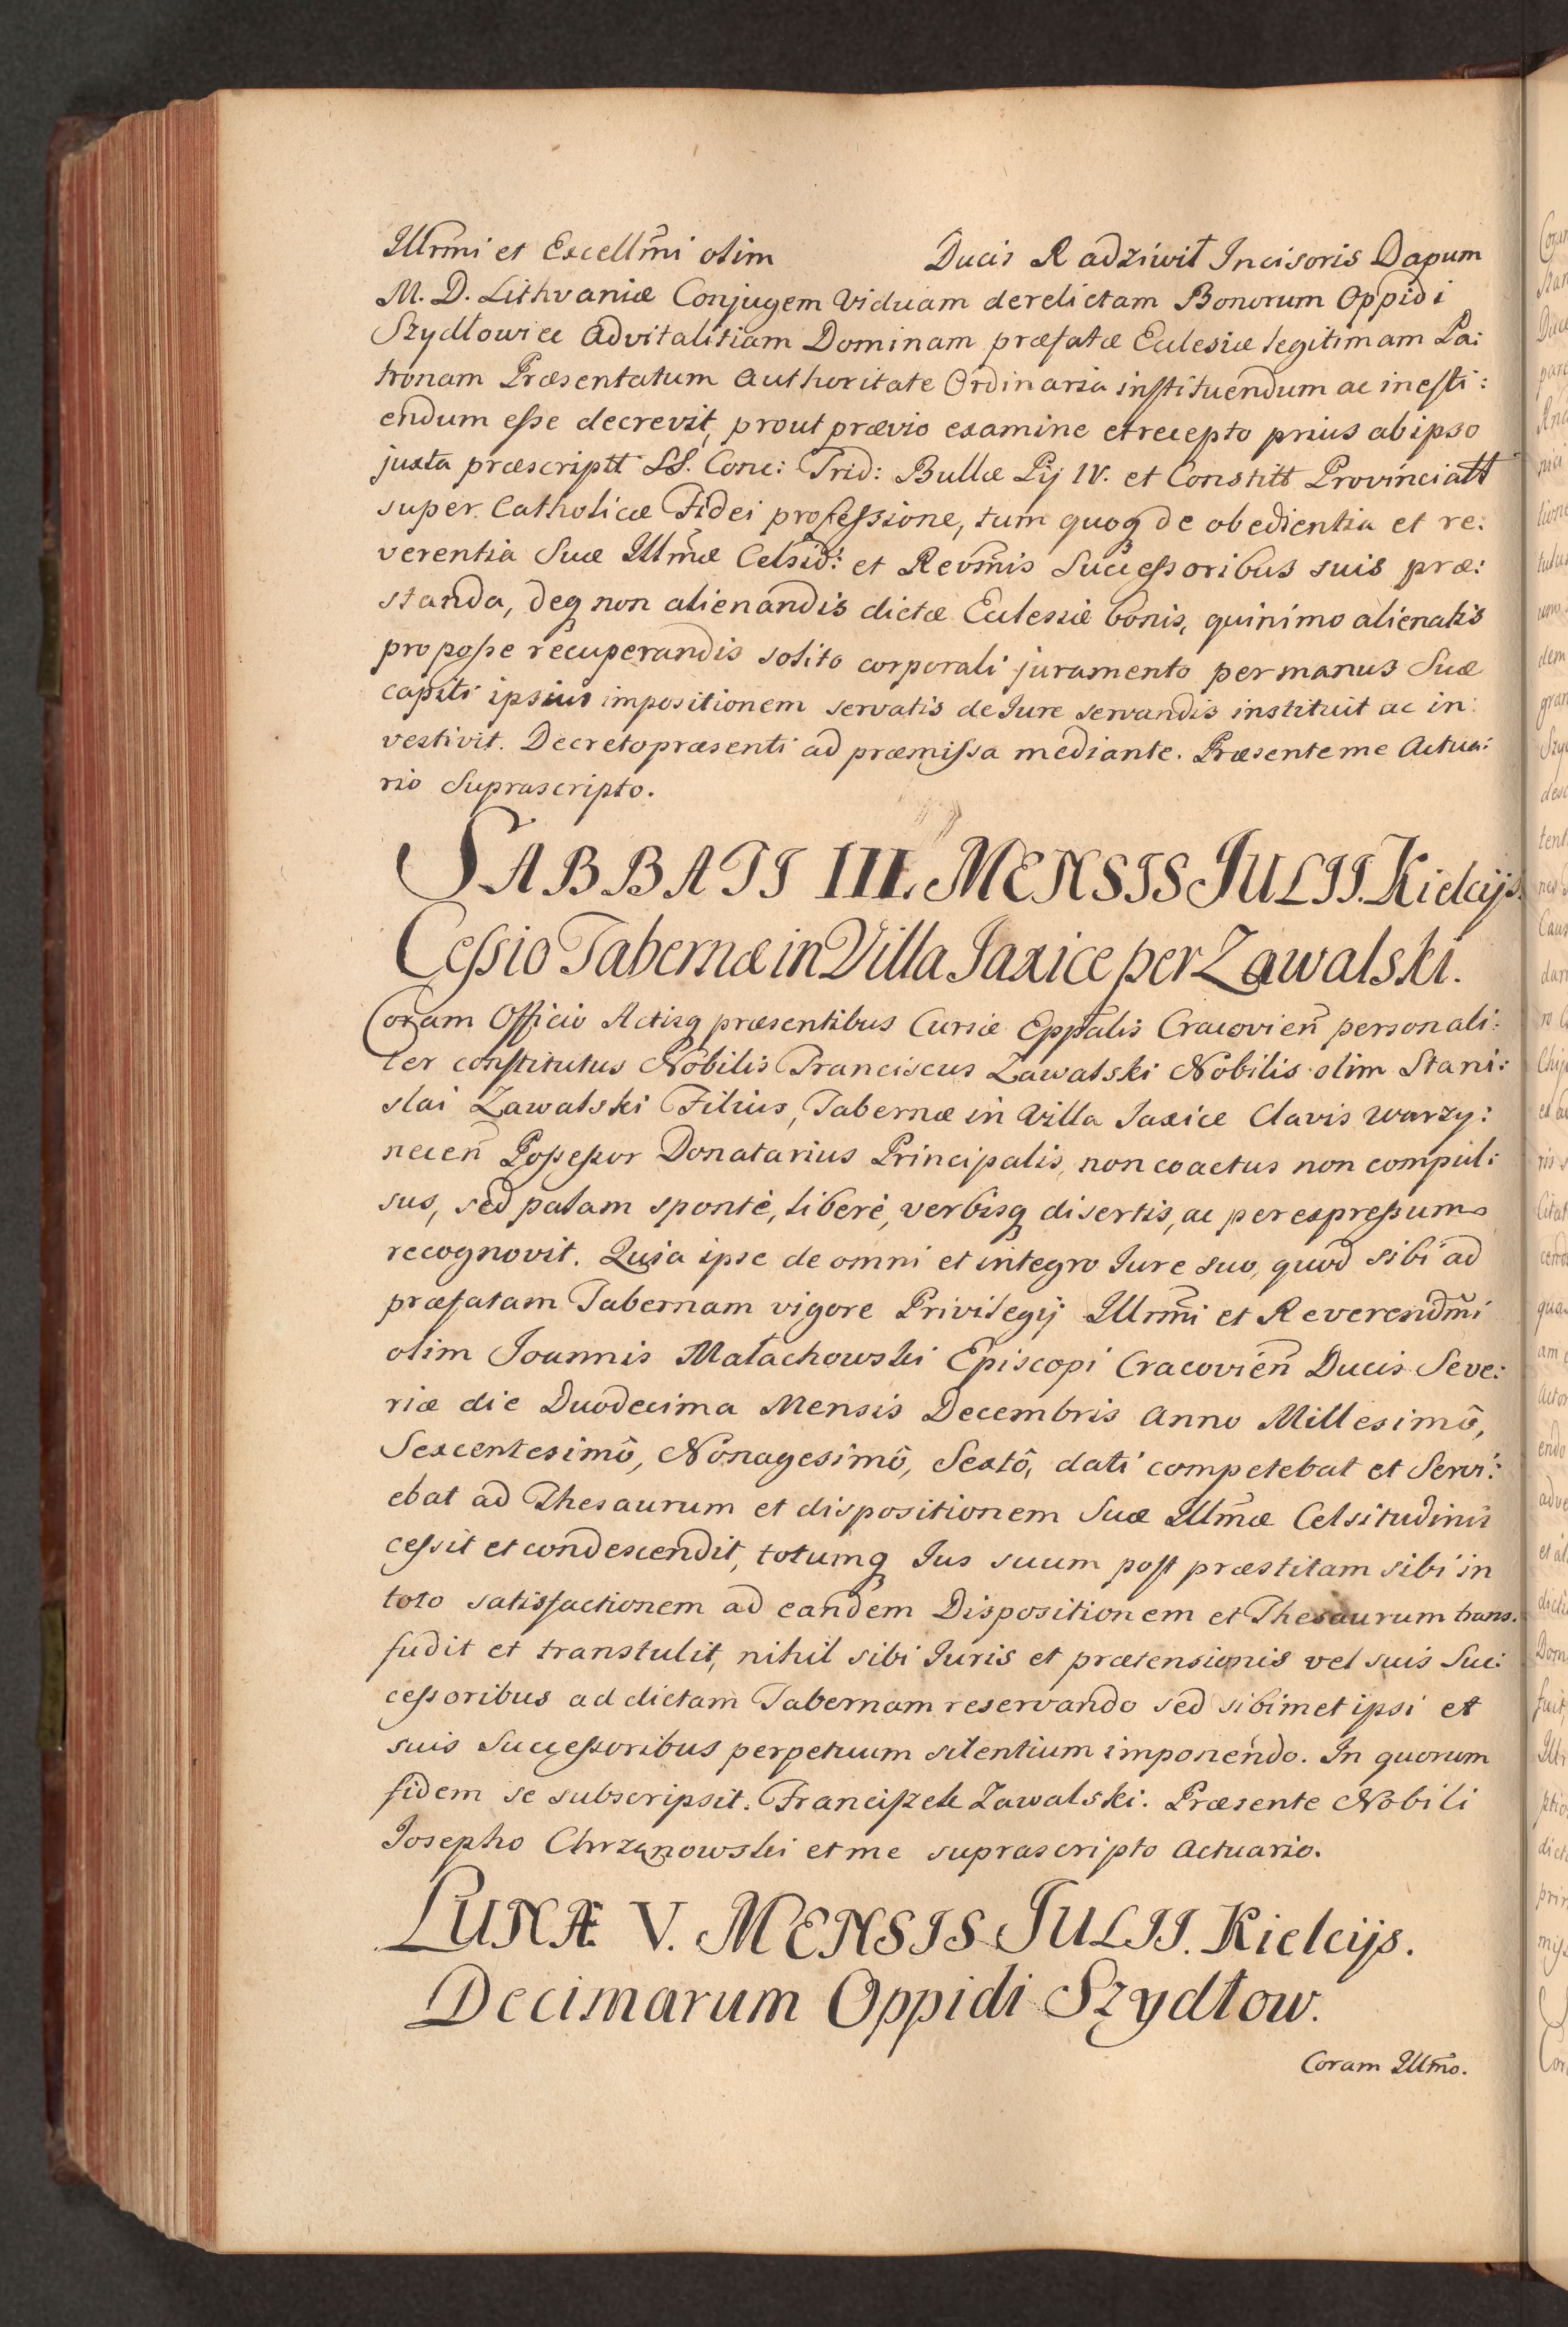 Illrm̃i et Excellm̃i olim Ducis Radziwił Incisoris Dapum
M. D. Lithvaniæ Conjugem Viduam derelictam Bonorum Oppidi
Szydłowice Advitalitiam Dominam præfatæ Ecclesiæ legitimam Pa:
tronam Præsentatum Authoritate Ordinaria instituendum ac inesti:
endum esse decrevit, prout prævio examine et recepto prius ab ipso
juxta præscriptt SS. Conc: Trid: Bullæ Pij IV. et Constitt Provincialtt
super Catholicæ Fidei professione, tum quoq de obedientia et re:
verentia Suæ Illm̃æ Celsid: et Revsm̃is Successoribus suis præ:
standa, deq non alienandis dictæ Ecclesiæ bonis, quinimo alienatis
pro posse recuperandis solito corporali juramento per manus Suæ
capiti ipsius impositionem servatis de Jure servandis instituit ac in:
vestivit. Decreto præsenti ad præmissa mediante. Præsente me Actua:
rio Suprascripto.
SABBATI III. MENSIS JULII. Kielcijs.
Cessio Tabernæ in Villa Jaxice per Zawalski.
Coram Officio Actisq præsentibus Curiæ Eppalis Cracovien̄ personali:
ter constitutus Nobilis Franciscus Zawalski Nobilis olim Stani:
slai Zawalski Filius, Tabernæ in Villa Jaxice Clavis Warzy:
necen̄ Possessor Donatarius Principalis, non coactus non compul:
sus, sed palam sponté, liberé, verbisq disertis, ac per expressum
recognovit. Quia ipse de omni et integro Jure suo, quod sibi ad
præfatam Tabernam vigore Privilegij Illrm̃i et Reverendm̃i
olim Joannis Małachowski Episcopi Cracovien̄ Ducis Seve:
riæ die Duodecima Mensis Decembris Anno Millesimô,
Sexcentesimô, Nonagesimô, Sextô, dati competebat et Servi:
ebat ad Thesaurum et dispositionem Suæ Illm̃æ Celsitudinis
cessit et condescendit, totumq Jus suum post præstitam sibi in
toto satisfactionem ad eandem Dispositionem et Thesaurum trans:
fudit et transtulit, nihil sibi Juris et prætensionis vel suis Suc:
cessoribus ad dictam Tabernam reservando sed sibimet ipsi et
suis Successoribus perpetuum silentium imponendo. In quorum
fidem se subscripsit. Franciszek Zawalski. Præsente Nobili
Josepho Chrzanowski et me suprascripto Actuario.
LUNÆ V. MENSIS JULII. Kielcijs.
Decimarum Oppidi Szydłow.
Coram Illm̃o.